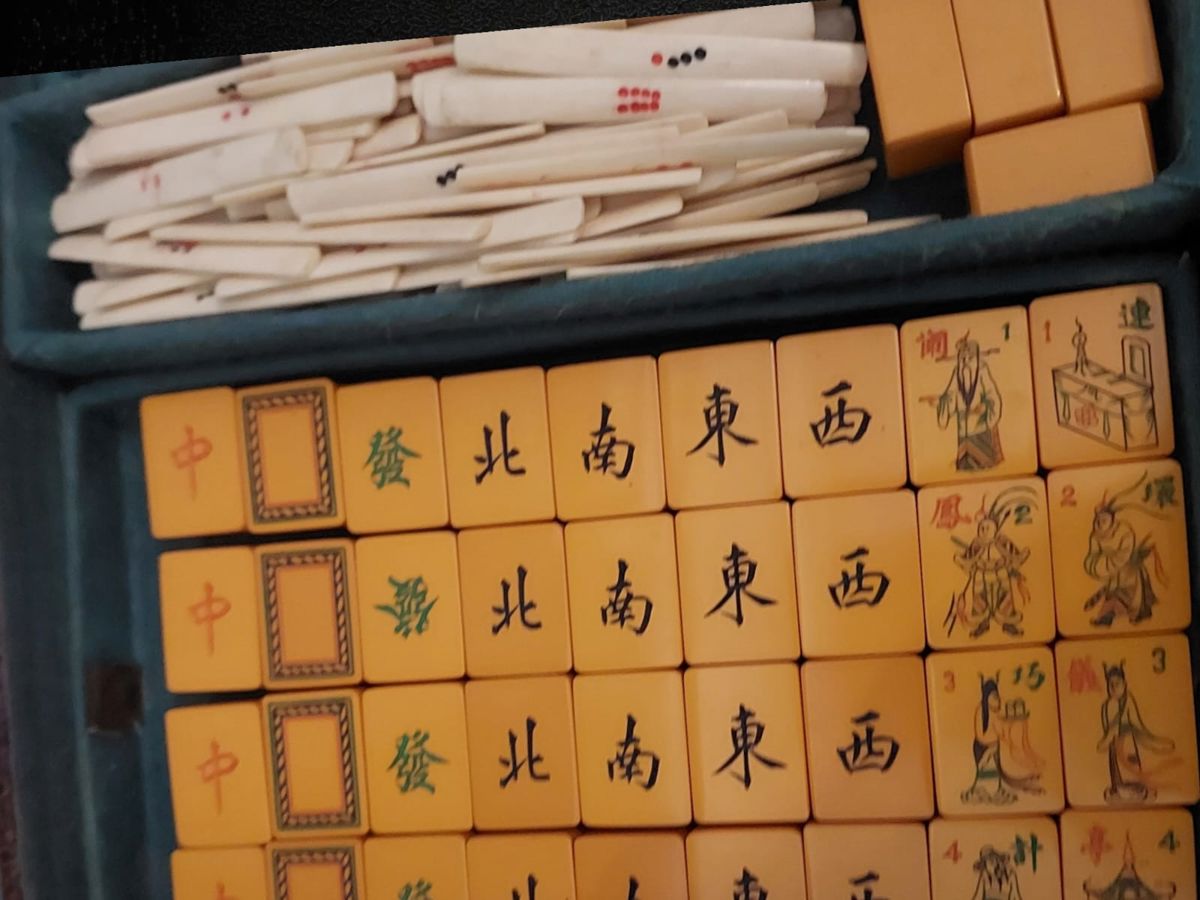 中 發 北 南 東 西 1 1 連
中 發 北 南 東 西 鳳 2 2 環
中 發 北 南 東 西 3 巧 儀 3
4 計 亭 4